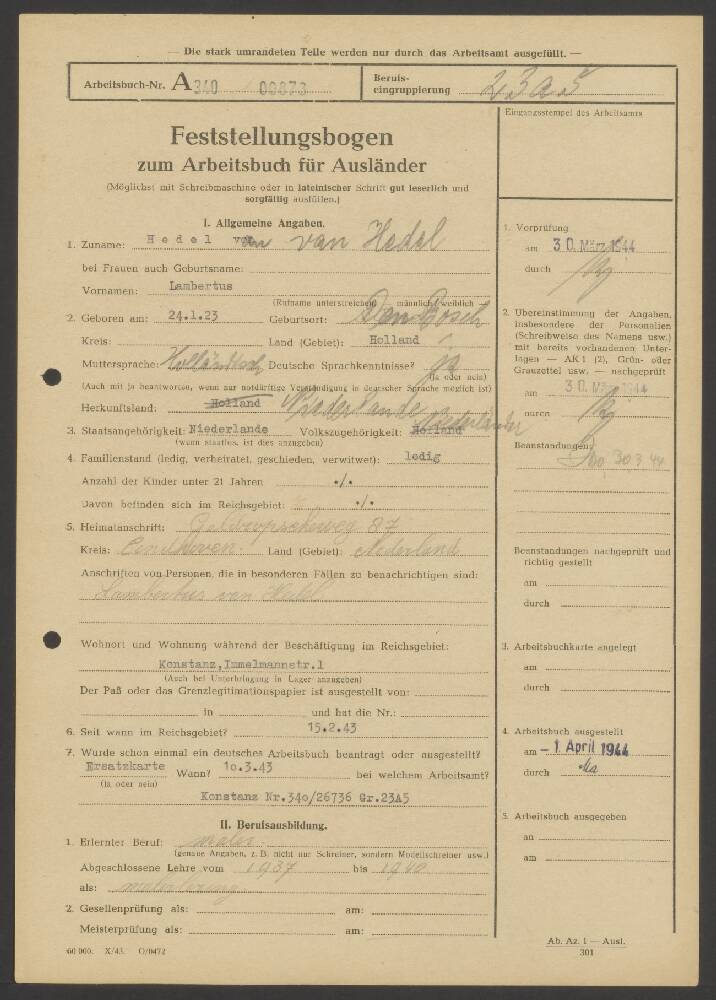 — Die stark umrandeten Teile werden nur durch das Arbeitsamt ausgefüllt. —
Arbeitsbuch-Nr. A 340 00873
Berufs-
eingruppierung 23 a 5
Eingangsstempel des Arbeitsamts
Feststellungsbogen
zum Arbeitsbuch für Ausländer
(Möglichst mit Schreibmaschine oder in lateinischer Schrift gut leserlich und
sorgfältig ausfüllen.)
I. Allgemeine Angaben.
1. Zuname: Hedel van Hedel
bei Frauen auch Geburtsname:
Vornamen: Lambertus
(Rufname unterstreichen) männlich weiblich
2. Geboren am: 24.1.23 Geburtsort: Den Bosch
Kreis: Land (Gebiet): Holland
Muttersprache: Holländisch Deutsche Sprachkenntnisse? ja
(ja oder nein)
(Auch mit ja beantworten, wenn nur notdürftige Verständigung in deutscher Sprache möglich ist)
Herkunftsland: Holland Niederlande
3. Staatsangehörigkeit: Niederlande Volkszugehörigkeit: Holland Niederländer
(wenn staatlos, ist dies anzugeben)
4. Familienstand (ledig, verheiratet, geschieden, verwitwet): ledig
Anzahl der Kinder unter 21 Jahren ./.
Davon befinden sich im Reichsgebiet: ./.
5. Heimatanschrift: 87
Kreis: Land (Gebiet): Nederland
Anschriften von Personen, die in besonderen Fällen zu benachrichtigen sind:
Lambertus van Hedel
Wohnort und Wohnung während der Beschäftigung im Reichsgebiet:
Konstanz, Immelmannstr.1
(Auch bei Unterbringung in Lager anzugeben)
Der Paß oder das Grenzlegitimationspapier ist ausgestellt von:
in und hat die Nr.:
6. Seit wann im Reichsgebiet? 15.2.43
7. Wurde schon einmal ein deutsches Arbeitsbuch beantragt oder ausgestellt?
Ersatzkarte Wann? 1o.3.43 bei welchem Arbeitsamt?
(ja oder nein)
Konstanz Nr.34o/26736 Gr.23A5
II. Berufsausbildung.
1. Erlernter Beruf: maler
(genaue Angaben, z. B. nicht nur Schreiner, sondern Modellschreiner usw.)
Abgeschlossene Lehre vom 1937 bis 1940
als:
2. Gesellenprüfung als: am:
Meisterprüfung als: am:
60 000. X/43. O/0472
1. Vorprüfung
am 30. März 1944
durch
2. Übereinstimmung der Angaben,
insbesondere der Personalien
(Schreibweise des Namens usw.)
mit bereits vorhandenen Unter-
lagen — AK 1 (2), Grün- oder
Grauzettel usw. — nachgeprüft
am 30. März 1944
durch
Beanstandungen:
30 3 44
Beanstandungen nachgeprüft und
richtig gestellt
am
durch
3. Arbeitsbuchkarte angelegt
am
durch
4. Arbeitsbuch ausgestellt
am – 1. April 1944
durch
5. Arbeitsbuch ausgegeben
an
am
Ab. Az. 1 — Ausl.
301